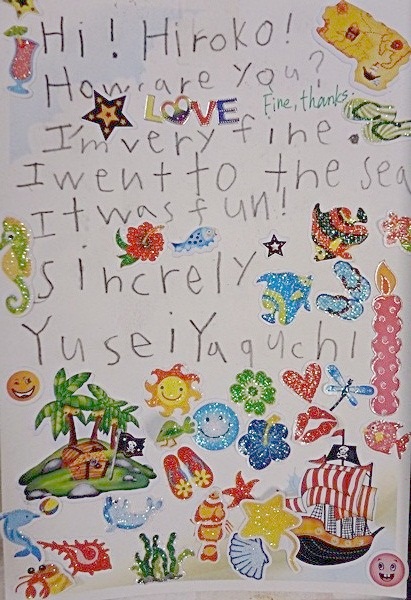 Hi! Hiroko!
How are you?
LOVE
Fine, thanks.
I'm very fine.
I went to the sea
It was fun!
Sincrely
Yusei Yaguchi